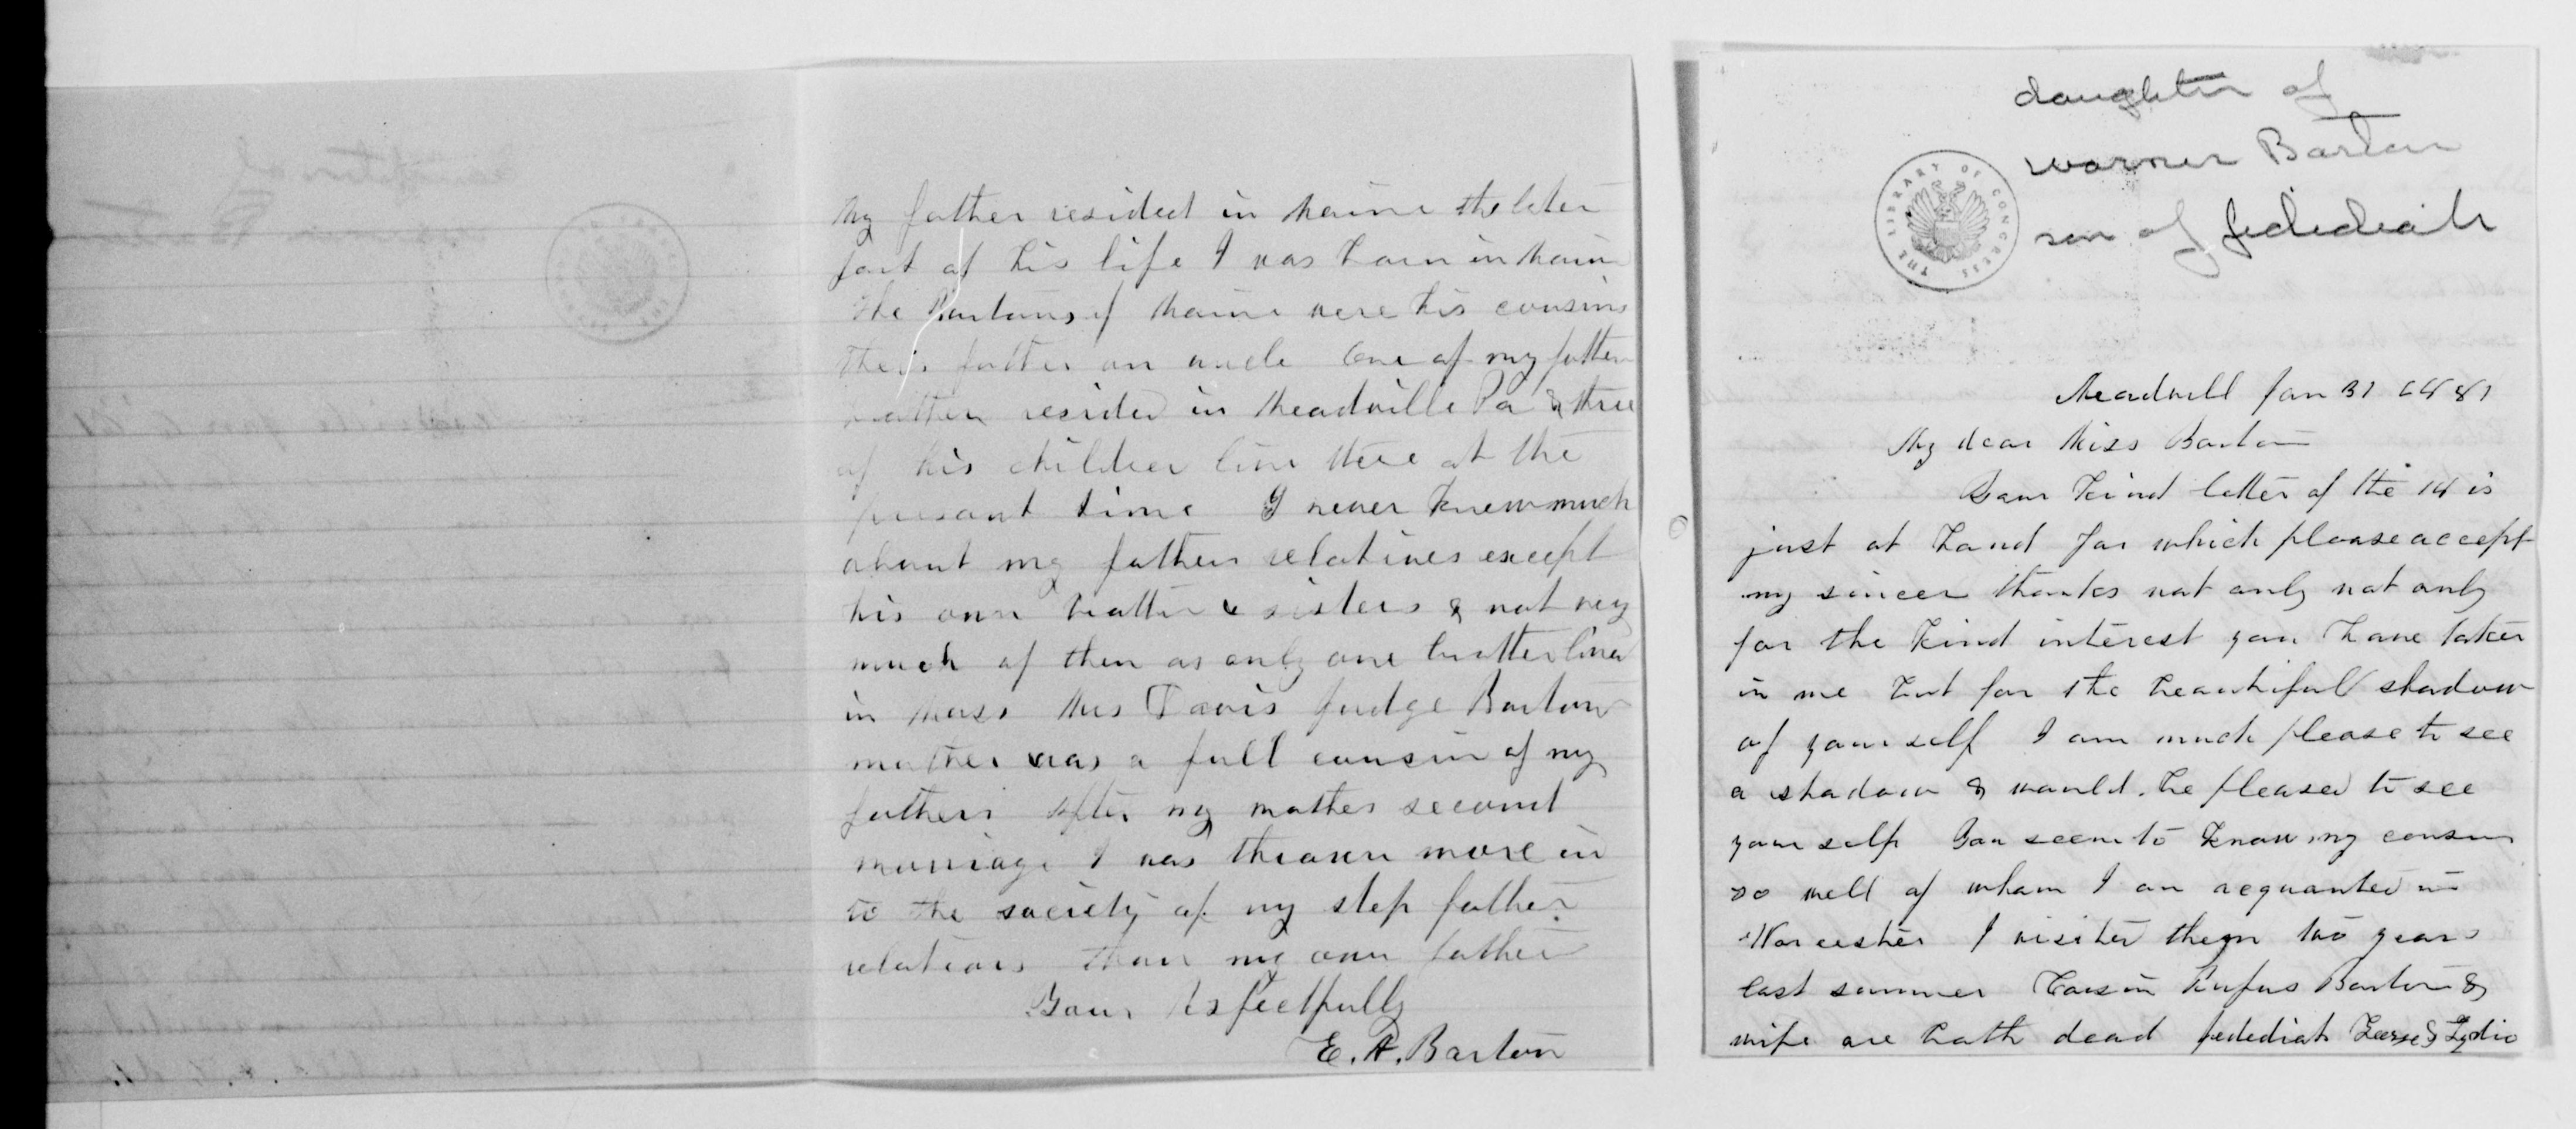 My father resided in Maine the later
part of his life I was born in Maine
the Bartons of Maine were his cousins
their father an uncle One of my father
brother resided in Meadville Pa & three
of his children live there at the
present time I never knew much
about my fathers relatives except
his own brother & sisters & not very
much of them as only one brother lived
in Mass Mrs Davis Judge Barton
mother was a full cousin of my
fathers After my mother second
marriage I was thrown more in
to the society of my step father
relations than my own father
Your Respectfully
E. A. Barton
daughter of
Warner Barton
son of Jedediah
THE LIBRARY OF CONGRESS
Meadvill Jan 31
My dear Miss Barton
Your kind letter of the 14 is
just at hand for which please accept
my sincer thanks not only not only
for the kind interest you have taken
in me but for the beautiful shadow
of your self I am much please to see
a shadow & would be pleased to see
your self You seem to know my cousin
so well of whom I am acquanted in
Worcester I visited them two years
last summer Cousin Rufus Barton &
wife are both dead Jedediah & Lydia